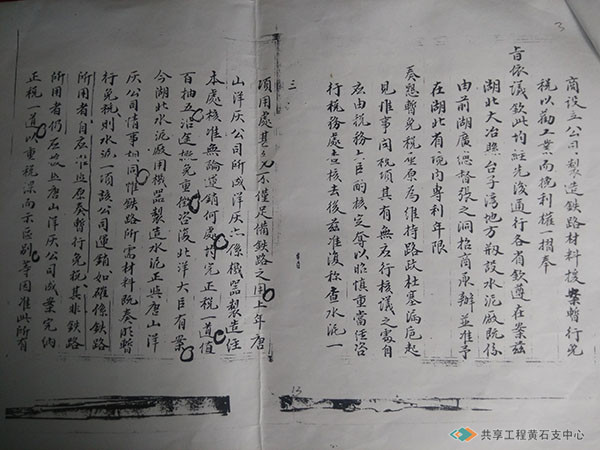 3
商設立公司製造鐵路材料援案暫行免
稅以勸工業而德利權一摺奉
旨依議欽此均經先後通行各省欽遵在案茲
湖北大冶縣台子灣地方剏設水泥廠既係
由前湖廣總督張之洞招商承辦並准予
在湖北省境內專利年限
奏懇暫免稅釐原為維持路政杜塞漏巵起
見惟事關稅項其有無應行核議之處自
應由稅務大臣酌核定奪以昭慎重當經咨
行稅務處查核去後茲准復稱查水泥一
三
項用處甚多不僅足備鐵路之用上年唐
山洋灰公司所成洋灰亦係機器製造任
本處核准無論運銷何處持完正稅一道值
百抽五沿途概免重徵咨復北洋大臣有案
今湖北水泥廠用機器製造水泥正與唐山洋
灰公司情事相同惟鐵路所需材料既奏明暫
行免稅則水泥一項該公司運銷如確係鐵路
所用者自應准照原奏暫行免稅其非鐵路
所用者仍應照唐山洋灰公司成案完納
正稅一道以重稅課而示區別等因准此所有
12
共享工程黄石支中心